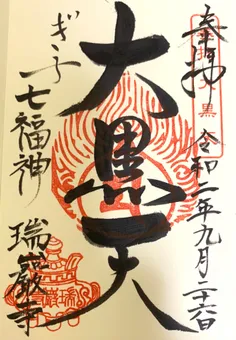 奉拝
令和二年九月二十六日
大黒天
ぎふ七福神
瑞巌寺